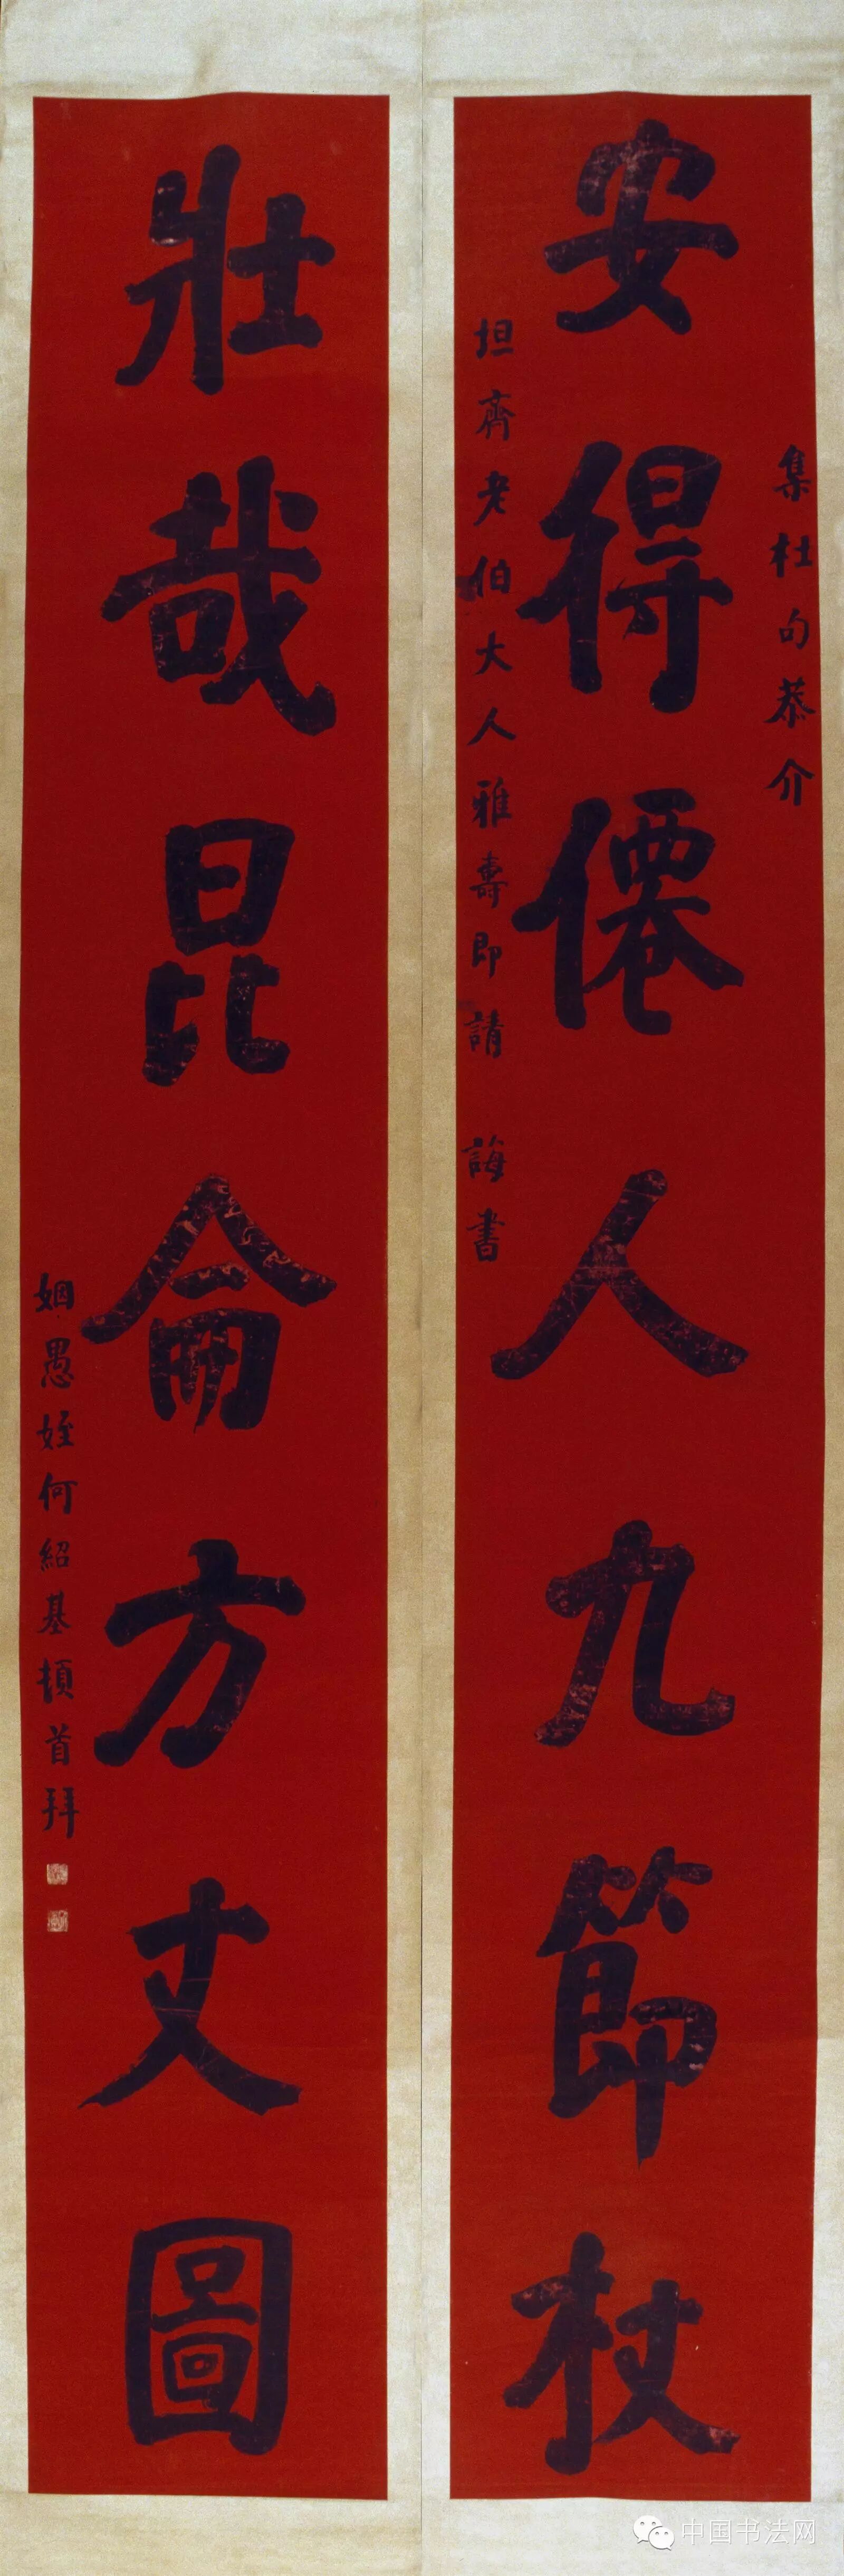 安得僊人九節杖
集杜句恭介
坦齋老伯大人雅壽即請
誨書
壯哉昆侖方丈圖
姻愚姪何紹基頓首拜
中国书法网